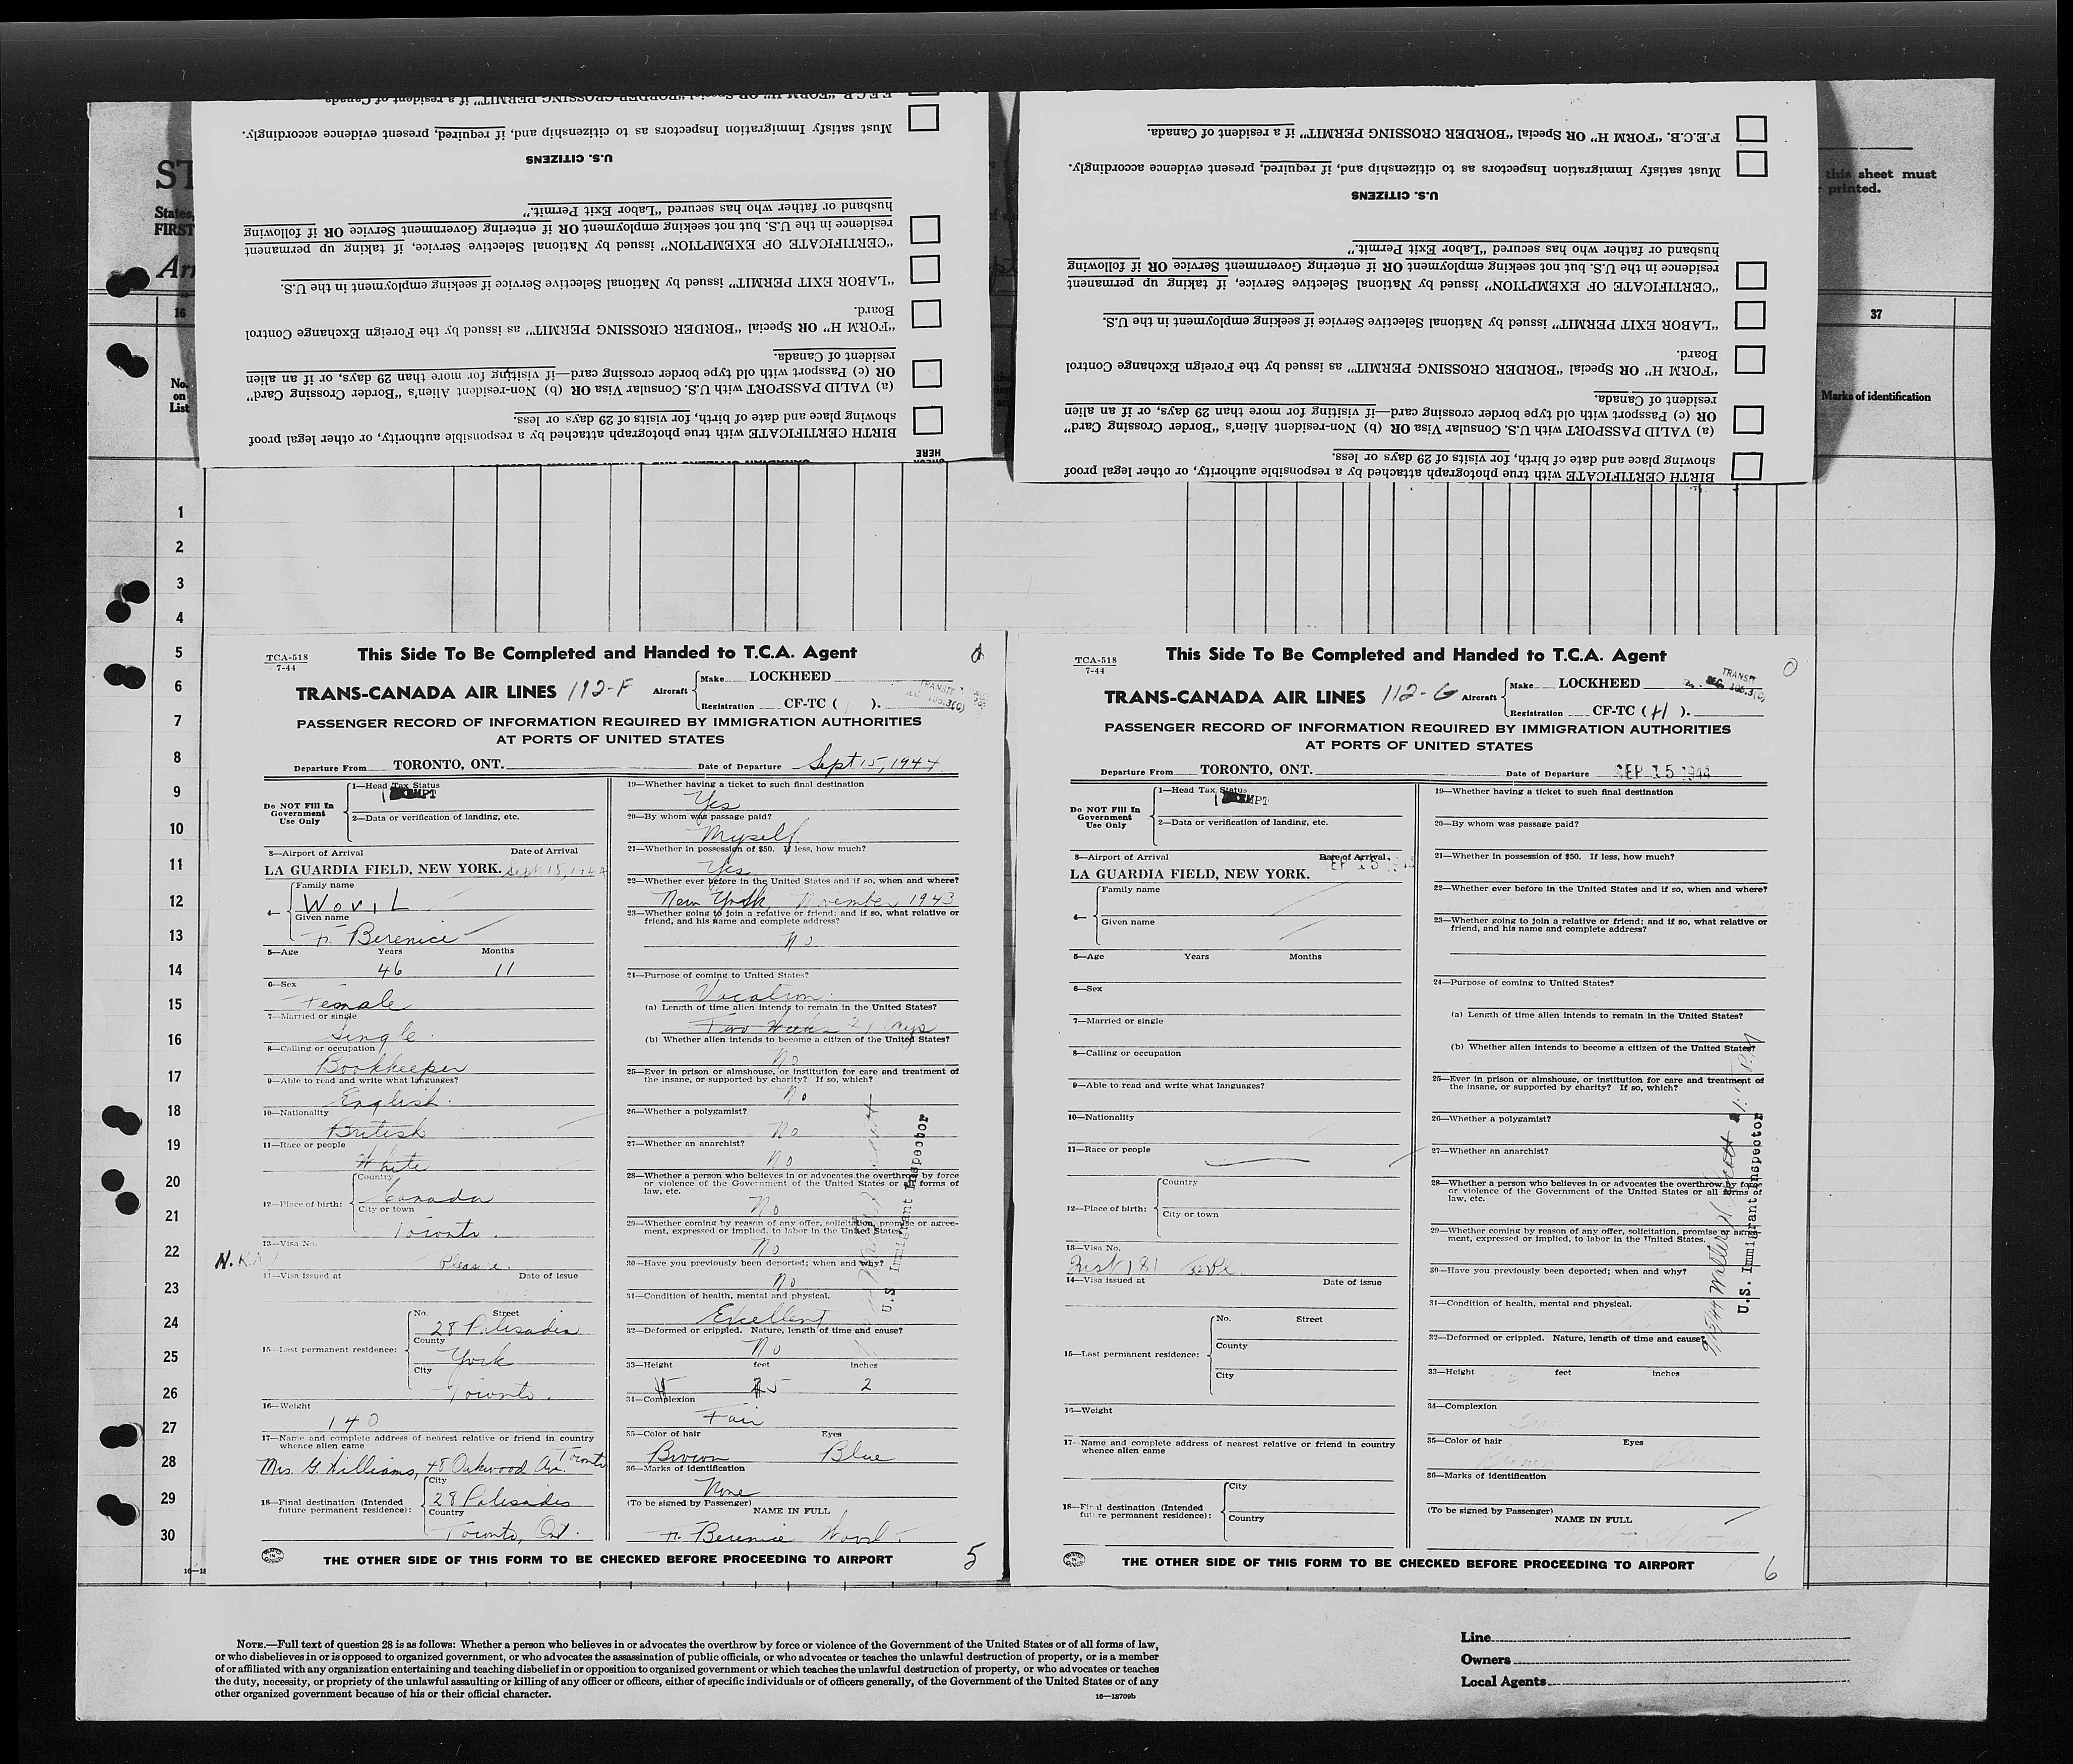 F.E.C.B. "FORM H" OR Special "BORDER CROSSING PERMIT" if a resident of Canada.
Must satisfy Immigration Inspectors as to citizenship and, if required, present evidence accordingly.
U.S. CITIZENS
husband or father who has secured "Labor Exit Permit."
residence in the U.S. but not seeking employment OR if entering Government Service OR if following
"CERTIFICATE OF EXEMPTION" issued by National Selective Service, if taking up permanent
"LABOR EXIT PERMIT" issued by National Selective Service if seeking employment in the U.S.
Board.
"FORM H" OR Special "BORDER CROSSING PERMIT" as issued by the Foreign Exchange Control
resident of Canada.
OR (c) Passport with old type border crossing card—if visiting for more than 29 days, or if an alien
(a) VALID PASSPORT with U.S. Consular Visa OR (b) Non-resident Alien's "Border Crossing Card"
showing place and date of birth, for visits of 29 days or less.
BIRTH CERTIFICATE with true photograph attached by a responsible authority, or other legal proof
HERE
F.E.C.B. "FORM H" OR Special "BORDER CROSSING PERMIT" if a resident of Canada.
Must satisfy Immigration Inspectors as to citizenship and, if required, present evidence accordingly.
U.S. CITIZENS
husband or father who has secured "Labor Exit Permit."
residence in the U.S. but not seeking employment OR if entering Government Service OR if following
"CERTIFICATE OF EXEMPTION" issued by National Selective Service, if taking up permanent
"LABOR EXIT PERMIT" issued by National Selective Service if seeking employment in the U.S.
Board.
"FORM H" OR Special "BORDER CROSSING PERMIT" as issued by the Foreign Exchange Control
resident of Canada.
OR (c) Passport with old type border crossing card—if visiting for more than 29 days, or if an alien
(a) VALID PASSPORT with U.S. Consular Visa OR (b) Non-resident Alien's "Border Crossing Card"
showing place and date of birth, for visits of 29 days or less.
BIRTH CERTIFICATE with true photograph attached by a responsible authority, or other legal proof
ST
States,
FIRST
16
No.
on
List
this sheet must
printed.
37
Marks of identification
1
2
3
4
5
6
7
8
9
10
11
12
13
14
15
16
17
18
19
20
21
22
23
24
25
26
27
28
29
30
TCA-518
7-44
This Side To Be Completed and Handed to T.C.A. Agent
TRANS-CANADA AIR LINES 112-F
Aircraft
Make LOCKHEED
Registration CF-TC ( ).
TRANSIT
PASSENGER RECORD OF INFORMATION REQUIRED BY IMMIGRATION AUTHORITIES
AT PORTS OF UNITED STATES
Departure From TORONTO, ONT. Date of Departure Sept 15, 1944
Do NOT Fill In
Government
Use Only
1—Head Tax Status
2—Data or verification of landing, etc.
3—Airport of Arrival Date of Arrival
LA GUARDIA FIELD, NEW YORK. Sept 15, 1944
4—
Family name
Wovil
Given name
Fr. Berenice
5—Age Years Months
46 11
6—Sex
Female
7—Married or single
Single
8—Calling or occupation
Bookkeeper
9—Able to read and write what languages?
English
10—Nationality
British
11—Race or people
White
12—Place of birth:
Country
Canada
City or town
Toronto.
13—Visa No.
Pleasure.
14—Visa issued at Date of issue
15—Last permanent residence:
No. Street
28 Palisades
County
York
City
Toronto.
16—Weight
140
17—Name and complete address of nearest relative or friend in country
whence alien came
Mrs. G. Williams, 48 Oakwood Av. Toronto
18—Final destination (Intended
future permanent residence):
City
28 Palisades
Country
Toronto, Ont.
19—Whether having a ticket to such final destination
Yes
20—By whom was passage paid?
Myself
21—Whether in possession of $50. If less, how much?
Yes
22—Whether ever before in the United States and if so, when and where?
New York, November 1943
23—Whether going to join a relative or friend; and if so, what relative or
friend, and his name and complete address?
No
24—Purpose of coming to United States?
Vacation
(a) Length of time alien intends to remain in the United States?
Two Weeks 21 days
(b) Whether alien intends to become a citizen of the United States?
No
25—Ever in prison or almshouse, or institution for care and treatment of
the insane, or supported by charity? If so, which?
No
26—Whether a polygamist?
No
27—Whether an anarchist?
No
28—Whether a person who believes in or advocates the overthrow by force
or violence of the Government of the United States or all forms of
law, etc.
No
29—Whether coming by reason of any offer, solicitation, promise or agree-
ment, expressed or implied, to labor in the United States?
No
30—Have you previously been deported; when and why?
No
31—Condition of health, mental and physical.
Excellent
32—Deformed or crippled. Nature, length of time and cause?
No
33—Height feet inches
5 2
34—Complexion
Fair
35—Color of hair Eyes
Brown Blue
36—Marks of identification
None
(To be signed by Passenger)
NAME IN FULL
U.S. Immigrant Inspector
THE OTHER SIDE OF THIS FORM TO BE CHECKED BEFORE PROCEEDING TO AIRPORT
5
TCA-518
7-44
This Side To Be Completed and Handed to T.C.A. Agent
TRANS-CANADA AIR LINES 112-G
Aircraft
Make LOCKHEED
Registration CF-TC (H).
TRANSIT
PASSENGER RECORD OF INFORMATION REQUIRED BY IMMIGRATION AUTHORITIES
AT PORTS OF UNITED STATES
Departure From TORONTO, ONT. Date of Departure SEP 15 1944
Do NOT Fill In
Government
Use Only
1—Head Tax Status
2—Data or verification of landing, etc.
3—Airport of Arrival Date of Arrival
LA GUARDIA FIELD, NEW YORK.
4—
Family name
Given name
5—Age Years Months
6—Sex
7—Married or single
8—Calling or occupation
9—Able to read and write what languages?
10—Nationality
11—Race or people
12—Place of birth:
Country
City or town
13—Visa No.
14—Visa issued at Date of issue
15—Last permanent residence:
No. Street
County
City
16—Weight
17—Name and complete address of nearest relative or friend in country
whence alien came
18—Final destination (Intended
future permanent residence):
City
Country
19—Whether having a ticket to such final destination
20—By whom was passage paid?
21—Whether in possession of $50. If less, how much?
22—Whether ever before in the United States and if so, when and where?
23—Whether going to join a relative or friend; and if so, what relative or
friend, and his name and complete address?
24—Purpose of coming to United States?
(a) Length of time alien intends to remain in the United States?
(b) Whether alien intends to become a citizen of the United States?
25—Ever in prison or almshouse, or institution for care and treatment of
the insane, or supported by charity? If so, which?
26—Whether a polygamist?
27—Whether an anarchist?
28—Whether a person who believes in or advocates the overthrow by force
or violence of the Government of the United States or all forms of
law, etc.
29—Whether coming by reason of any offer, solicitation, promise or agree-
ment, expressed or implied, to labor in the United States.
30—Have you previously been deported; when and why?
31—Condition of health, mental and physical.
32—Deformed or crippled. Nature, length of time and cause?
33—Height feet inches
34—Complexion
35—Color of hair Eyes
36—Marks of identification
(To be signed by Passenger)
NAME IN FULL
U.S. Immigrant Inspector
THE OTHER SIDE OF THIS FORM TO BE CHECKED BEFORE PROCEEDING TO AIRPORT
6
NOTE.—Full text of question 28 is as follows: Whether a person who believes in or advocates the overthrow by force or violence of the Government of the United States or of all forms of law,
or who disbelieves in or is opposed to organized government, or who advocates the assassination of public officials, or who advocates or teaches the unlawful destruction of property, or is a member
of or affiliated with any organization entertaining and teaching disbelief in or opposition to organized government or which teaches the unlawful destruction of property, or who advocates or teaches
the duty, necessity, or propriety of the unlawful assaulting or killing of any officer or officers, either of specific individuals or of officers generally, of the Government of the United States or of any
other organized government because of his or their official character.
16—18709b
Line
Owners
Local Agents